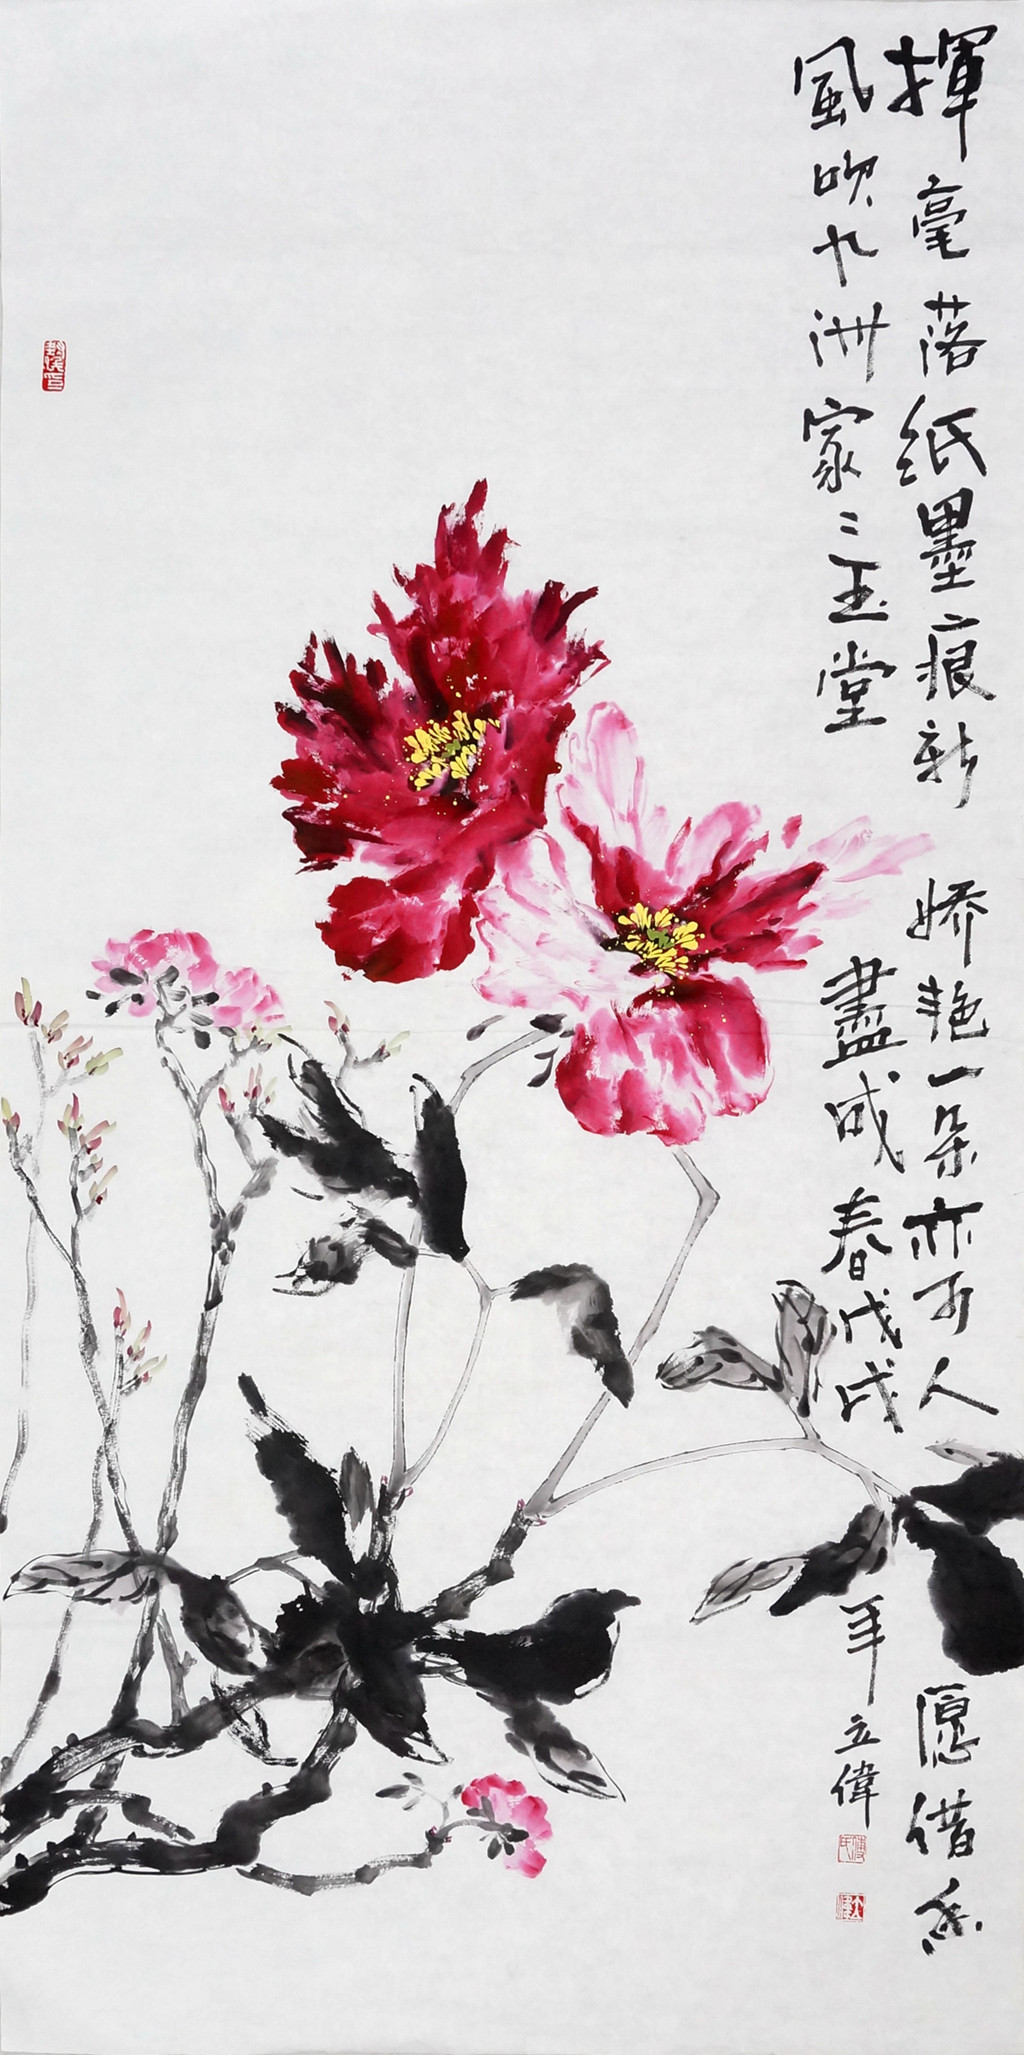 揮毫落纸墨痕新 娇艳一朵亦可人 愿借香
風吹九洲家〻玉堂盡成春戊戌年立偉